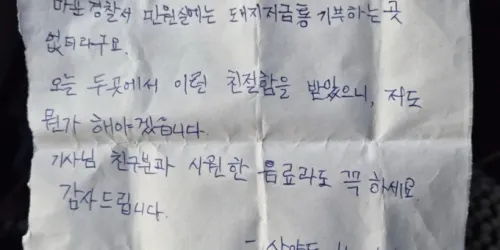 마포경찰서 민원실에는 돼지저금통 기부하는 곳
없더라구요.
오늘 두곳에서 이런 친절함을 받았으니, 저도
뭔가 해야겠습니다.
기사님 친구분과 시원한 음료라도 꼭 하세요
감사드립니다.